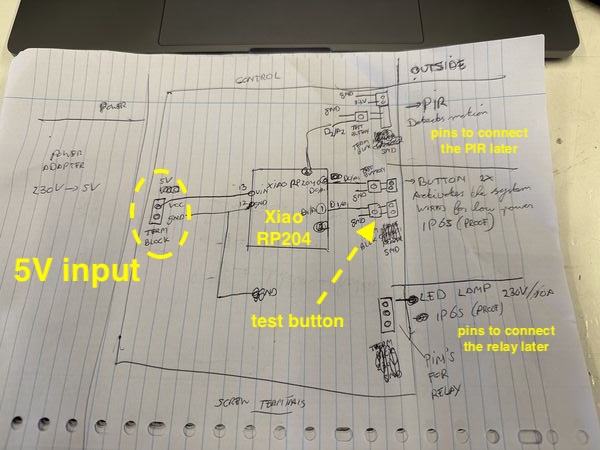 OUTSIDE
CONTROL
POWER
POWER
ADAPTER
230V → 5V
5V
VCC
GND
TERM
BLOCK
5V input
GND
3.3V
GND
D2/A2
TEST
BUTTON
TERM
SMD
→ PIR
Detects motion
pins to connect
the PIR later
XIAO RP204
13
VIN
12
GND
Xiao
RP204
GND
TEST
BUTTON
GND
D1/A1
GND
SMD
test button
→ BUTTON 2X
Activates the system
WIRED for low power
IP65 (PROOF)
LED LAMP 230V/10A
IP65 (PROOF)
pins to connect
the relay later
TERM
PIN'S
FOR
RELAY
SCREW TERMINALS